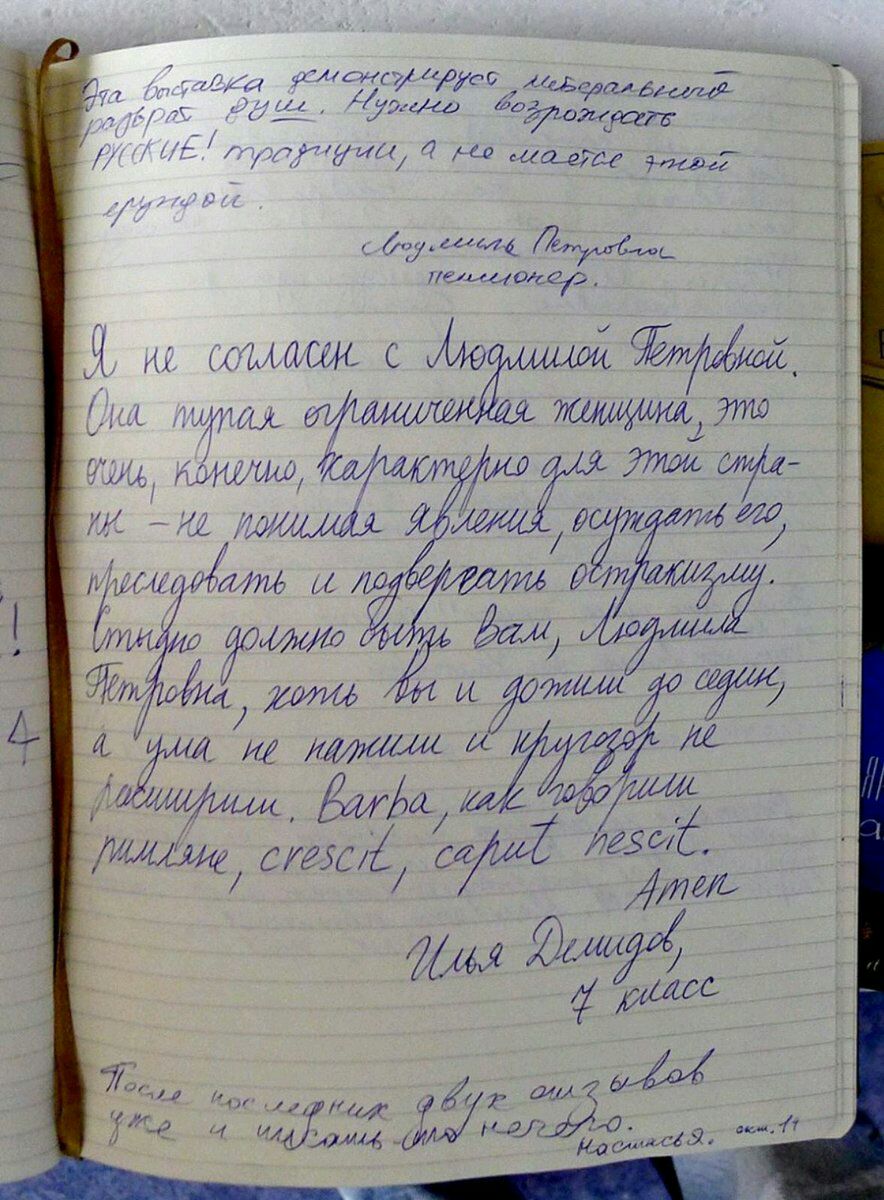 Эта выставка демонстрирует либеральный
разврат душ. Нужно возрождать
РУССКИЕ! традиции, а не маятся этой
ерундой.
Людмила Петровна
пенсионер.
Я не согласен с Людмилой Петровной.
Она тупая ограниченная женщина, это
очень, конечно, характерно для этой стра-
ны – не понимая явления, осуждать его,
преследовать и подвергать остракизму.
Стыдно должно быть Вам, Людмила
Петровна, хоть вы и дожили до седин,
а ума не нажили и кругозор не
расширили. Barba, как говорили
римляне, crescit, caput nescit.
Amen
Илья Демидов,
7 класс
После последних двух отзывов
уже и писать нечего.
Настасья. окт. 14
!
4